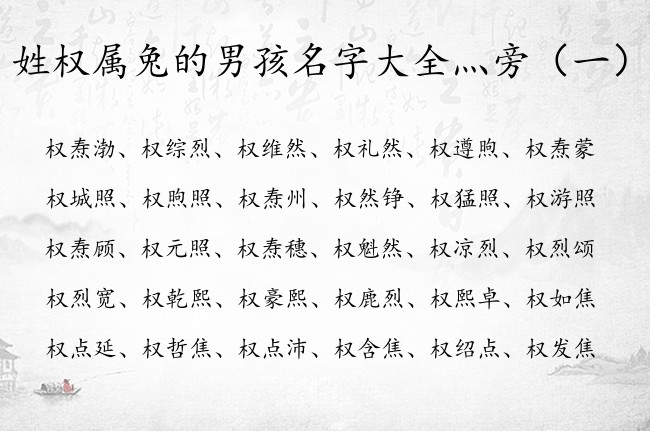 姓权属兔的男孩名字大全灬旁（一）
权焘渤、权综烈、权维然、权礼然、权遵煦、权焘蒙
权城照、权煦照、权焘州、权然铮、权猛照、权游照
权焘顾、权元照、权焘穗、权魁然、权凉烈、权烈颂
权烈宽、权乾熙、权豪熙、权鹿烈、权熙卓、权如焦
权点延、权哲焦、权点沛、权含焦、权绍点、权发焦